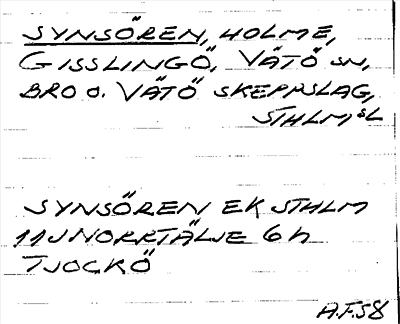 SYNSÖREN, HOLME,
GISSLINGÖ, VÄTÖ SN,
BRO O. VÄTÖ SKEPPSLAG,
STHLM SL
SYNSÖREN EK STHLM
11J NORRTÄLJE 6h
TJOCKÖ
A.F.58